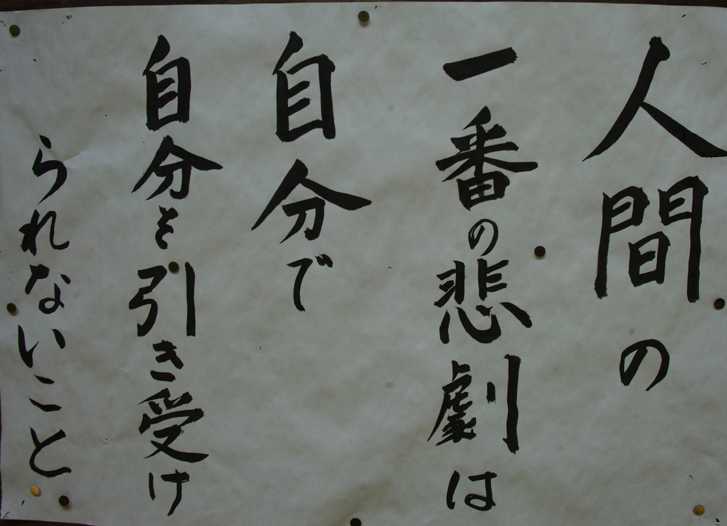 人間の
一番の悲劇は
自分で
自分を引き受け
られないこと